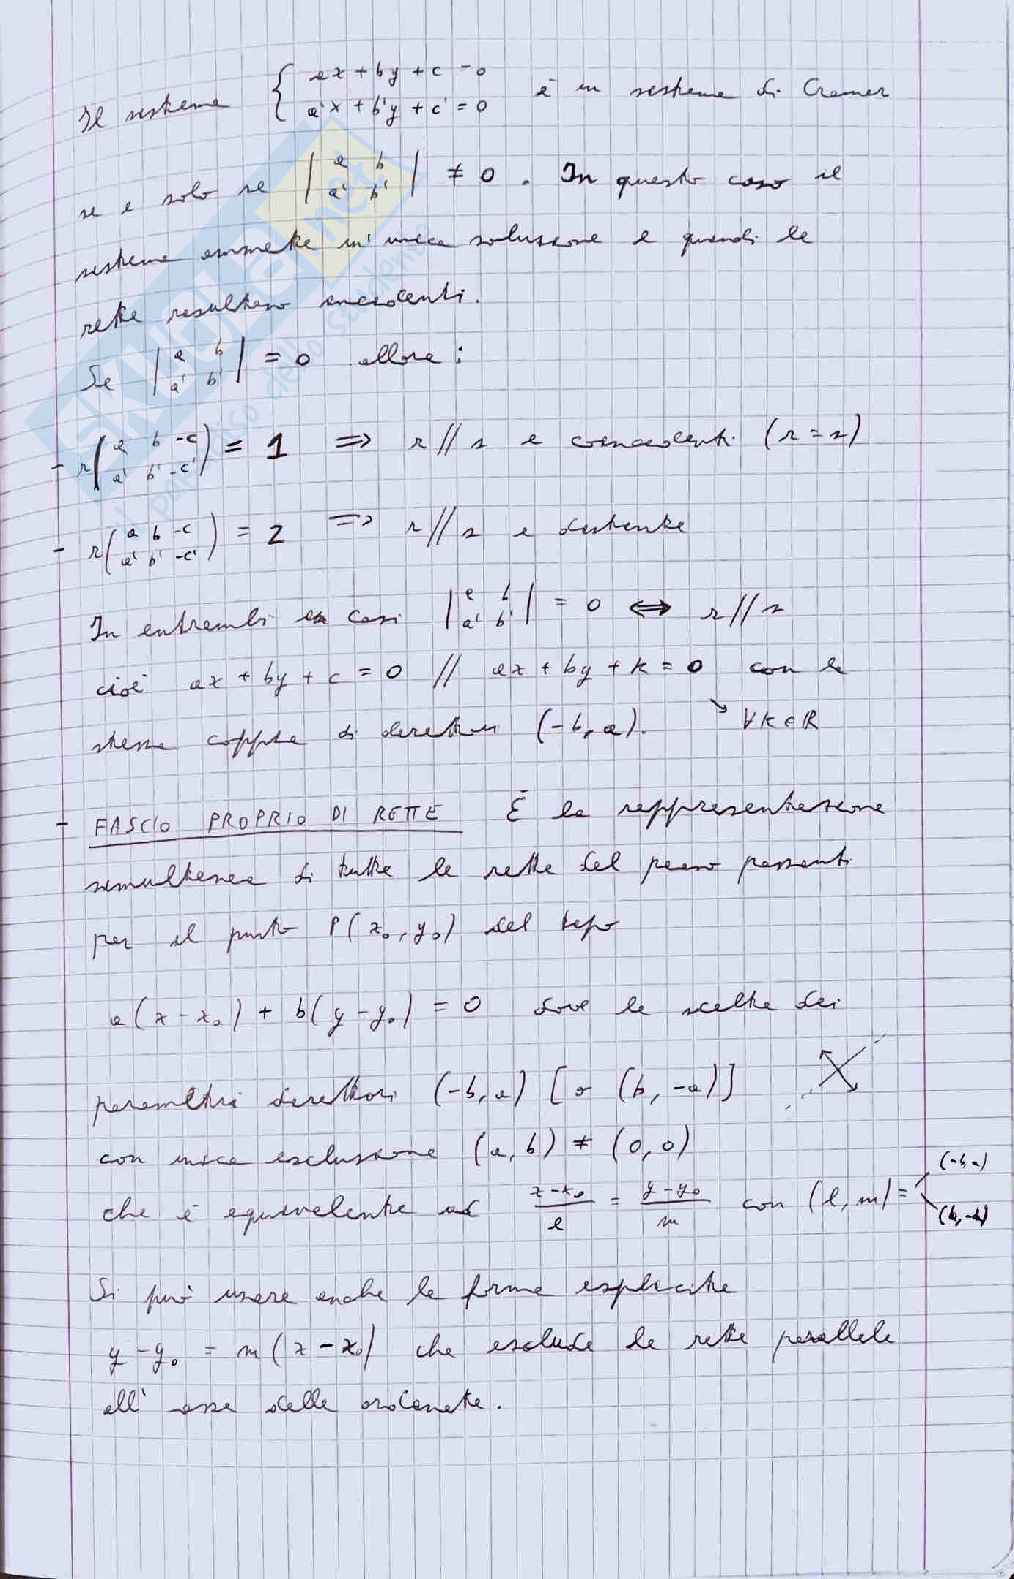 Il sistema { ax + by + c = 0
a'x + b'y + c' = 0 è un sistema di Cramer
se e solo se | a b
a' b' | ≠ 0 . In questo caso il
sistema ammette un'unica soluzione e quindi le
rette risultano incidenti.
Se | a b
a' b' | = 0 allora :
- r( a b -c
a' b' -c' ) = 1 => r // s e coincidenti (r = s)
- r( a b -c
a' b' -c' ) = 2 => r // s e distinte
In entrambi casi | a b
a' b' | = 0 <=> r // s
cioè ax + by + c = 0 // ax + by + k = 0 con la
stessa coppia di direttori (-b, a). ↘ ∀k∈R
- FASCIO PROPRIO DI RETTE È la rappresentazione
simultanea di tutte le rette del piano passanti
per il punto P(x₀, y₀) del tipo
a(x-x₀) + b(y-y₀) = 0 dove la scelta dei
parametri direttori (-b, a) [o (b, -a)]
con unica esclusione (a, b) ≠ (0, 0)
che è equivalente ad x-x₀/l = y-y₀/m con (l, m) = (-b, a)
(b, -a)
Si può usare anche la forma esplicita
y - y₀ = m(x - x₀) che esclude le rette parallele
all' asse delle ordinate.
SKUOLA.net